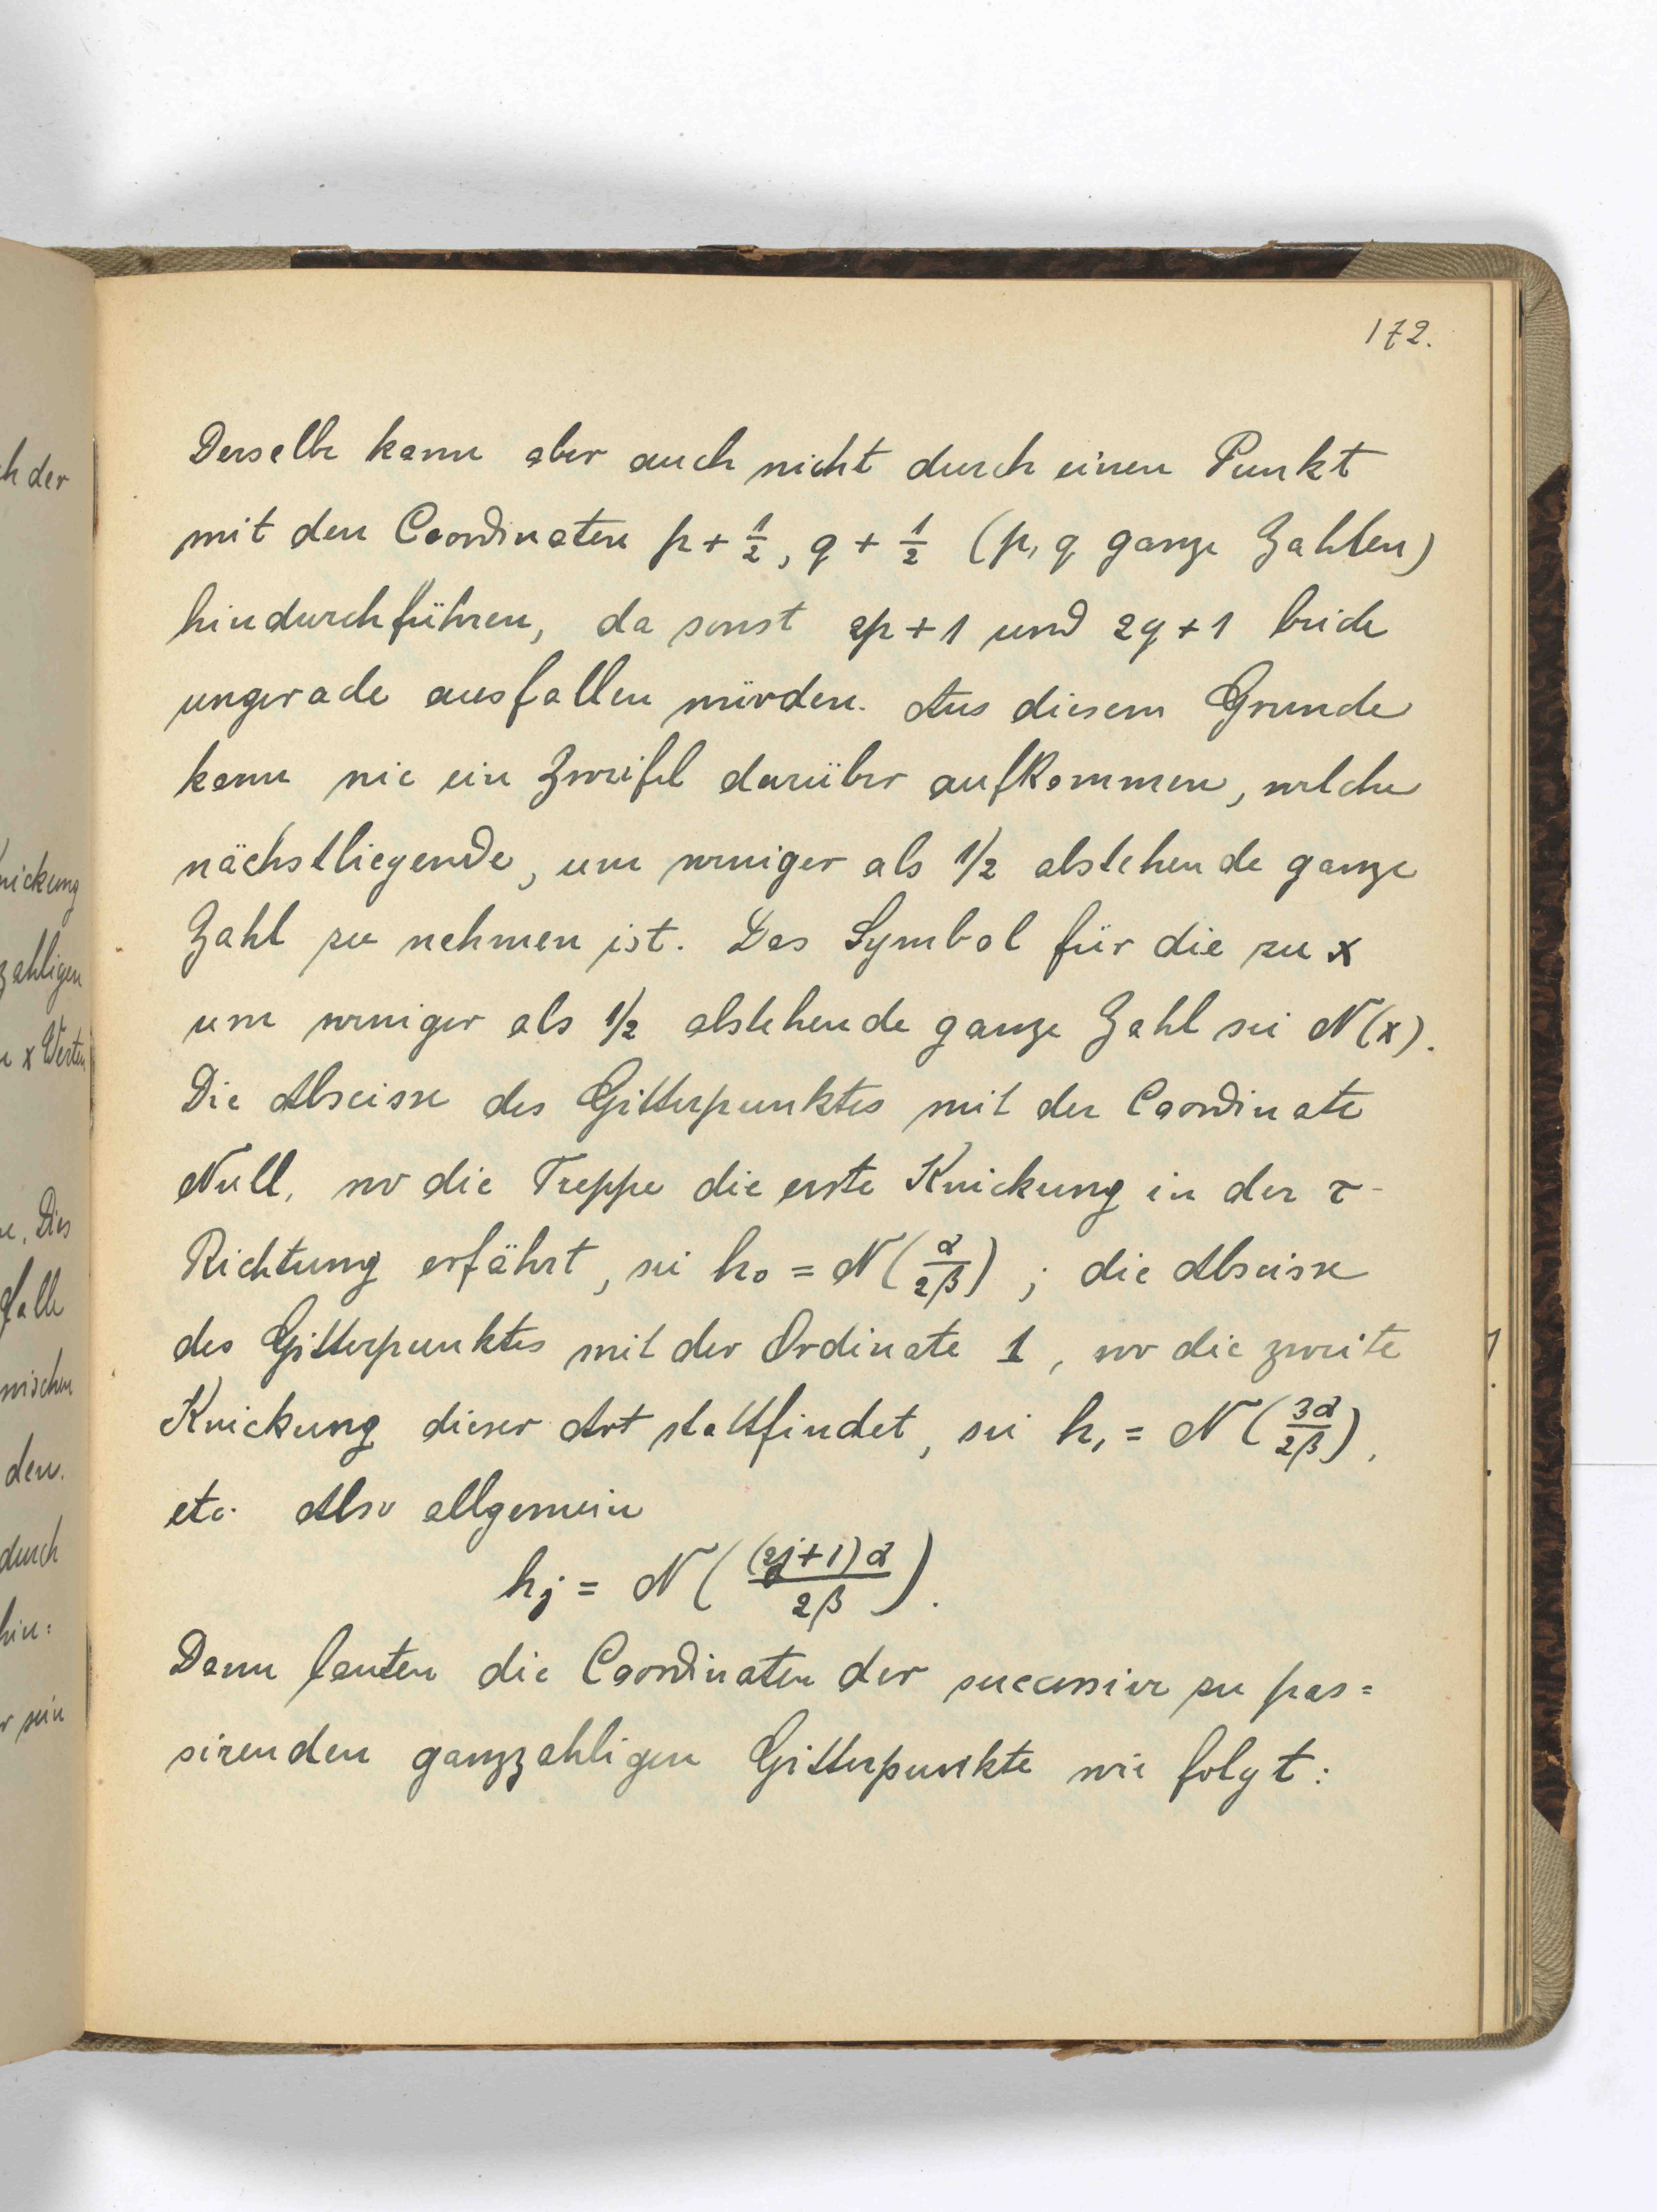 172.
Derselbe kann aber auch nicht durch einen Punkt
mit den Coordinaten p + 1/2, q + 1/2 (p, q ganze Zahlen)
hindurchführen, da sonst 2p + 1 und 2q + 1 beide
ungerade ausfallen würden. Aus diesem Grunde
kann nie ein Zweifel darüber aufkommen, welche
nächstliegende, um weniger als 1/2 abstehende ganze
Zahl zu nehmen ist. Das Symbol für die zu x
um weniger als 1/2 abstehende ganze Zahl sei N(x).
Die Abscisse des Gitterpunktes mit der Coordinate
Null, wo die Treppe die erste Knickung in der τ-
Richtung erfährt, sei h₀ = N(α/2β) ; die Abscisse
des Gitterpunktes mit der Ordinate 1, wo die zweite
Knickung dieser Art stattfindet, sei h₁ = N(3α/2β),
etc. Also allgemein
hⱼ = N((2j+1)α/2β).
Dann lauten die Coordinaten der successive zu pas=
sirenden ganzzahligen Gitterpunkte wie folgt:
h der
nickung
zahligen
x Werten
Dies
falle
wischen
den.
durch
hin:
r sein